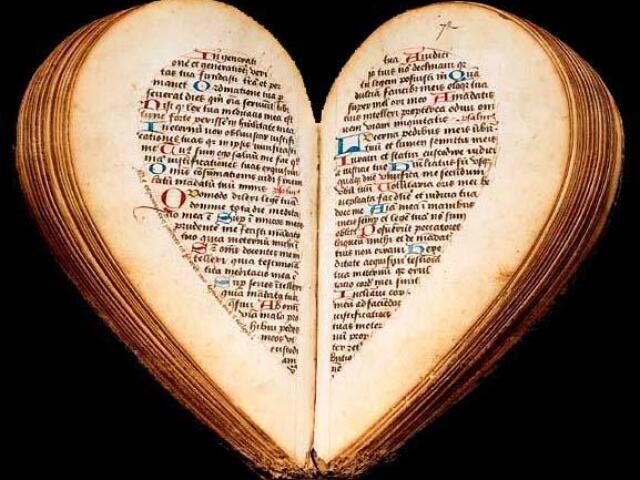 In generati
one et generatione veri
tas tua fundasti trã et per
manet Ordinatione tua p
severat dies qm oia
tua meditatio mea est
tunc forte periissem in humilitate mea
In eternu non obliviscar iustifi
cationes tuas qr in ipsis
me Tuus sum ego salvu me fac qm
iustificationes tuas
Omis consumationis vidi finem
latu mandatu tuu nimis psalmus
Quomodo dilexi lege tua
domine tota die medita
tio mea ē Sup inimicos meos
prudente me fecisti mandato
tuo quia in eternu mihi ē
omes docentes me in
tellexi quia testimonia
tua meditatio mea ē
Sup senes itellexi
quia mãdata tua
qsivi Ab omi
via mala pro
hibui pedes
meos ut
custodi
am
72
tua A iudici
is tuis nõ declinavi qr
tu legem posuisti mi Quã
dulcia faucibus meis eloqa tua
super mel ori meo A mãdatis
tuis intellexi propterea odivi om
nem viam iniquitatis psalmus
Lucerna pedibus meis verbũ
tuũ et lumen semitis meis
Iuravi et statui custodire iudici
a iusticie tue Humiliatus sũ usq
quaq dñe vivifica me secundum
verbũ tuũ Voluntaria oris mei be
neplacita fac dñe et iudicia tua
doce me Aĩa mea ĩ manibus
meis semp et lege tuã nõ sum
oblitus Posuerũt peccatores
laqueũ mihi et de mãdatis
tuis non erravi Here
ditate acquisivi testimonia
tua ineternũ qr exul
tatio cord mei sunt
Inclinavi cor
meũ ad faciẽdas
iustificationes
tuas ineter
nũ prop
ter ret
butio